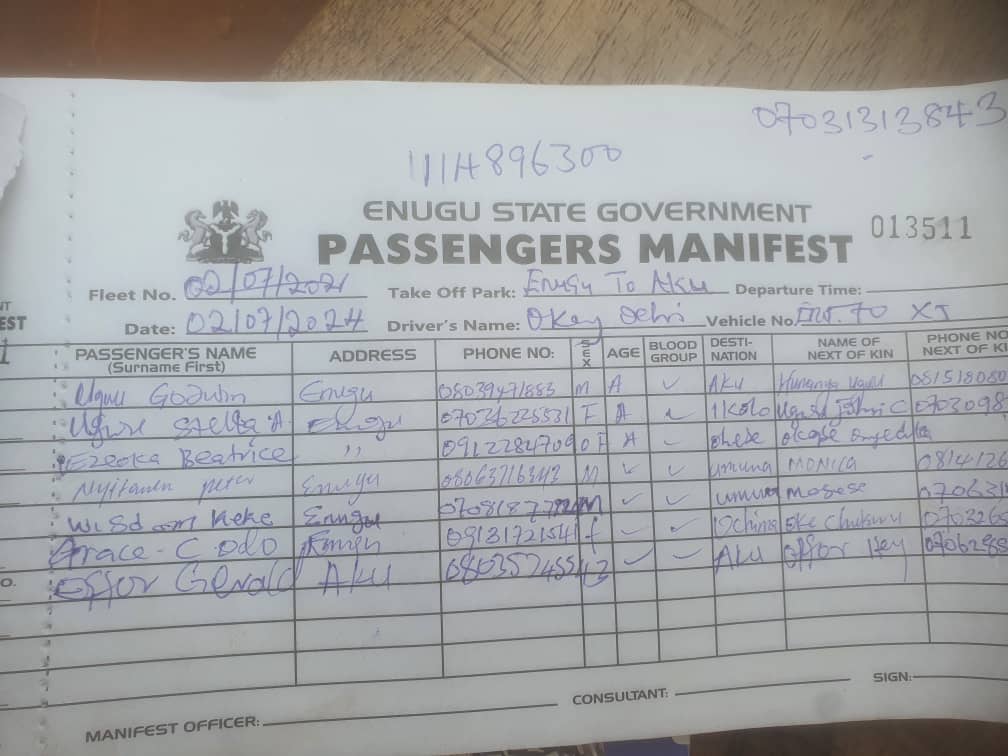 07031313843
111H896300
ENUGU STATE GOVERNMENT
PASSENGERS MANIFEST 013511
Fleet No. 02/07/2021 Take Off Park: Enugu To Aku Departure Time:
Date: 02/07/2024 Driver's Name: Okey Vehicle No. 70 XJ
PASSENGER'S NAME (Surname First) ADDRESS PHONE NO: SEX AGE BLOOD GROUP DESTI-NATION NAME OF NEXT OF KIN PHONE NO NEXT OF KI
Ugwu Godwin Enugu 08039471883 M A Aku Ugwu 081518080
Ugwu Stella A Enugu 07036225531 F A Ikolo Ugwu 0703098
Ezeoka Beatrice ,, 0912284709 F A ohebe okafe
peter Enugu M umuna MONICA 0814126
Wisdom Keke Enugu M 070631
Grace-C Odo Enugu 0913172154 f Oke Chukwu 070326
Offor Gerald Aku 080357455 AKU Offor 0706289
MANIFEST OFFICER: CONSULTANT: SIGN: